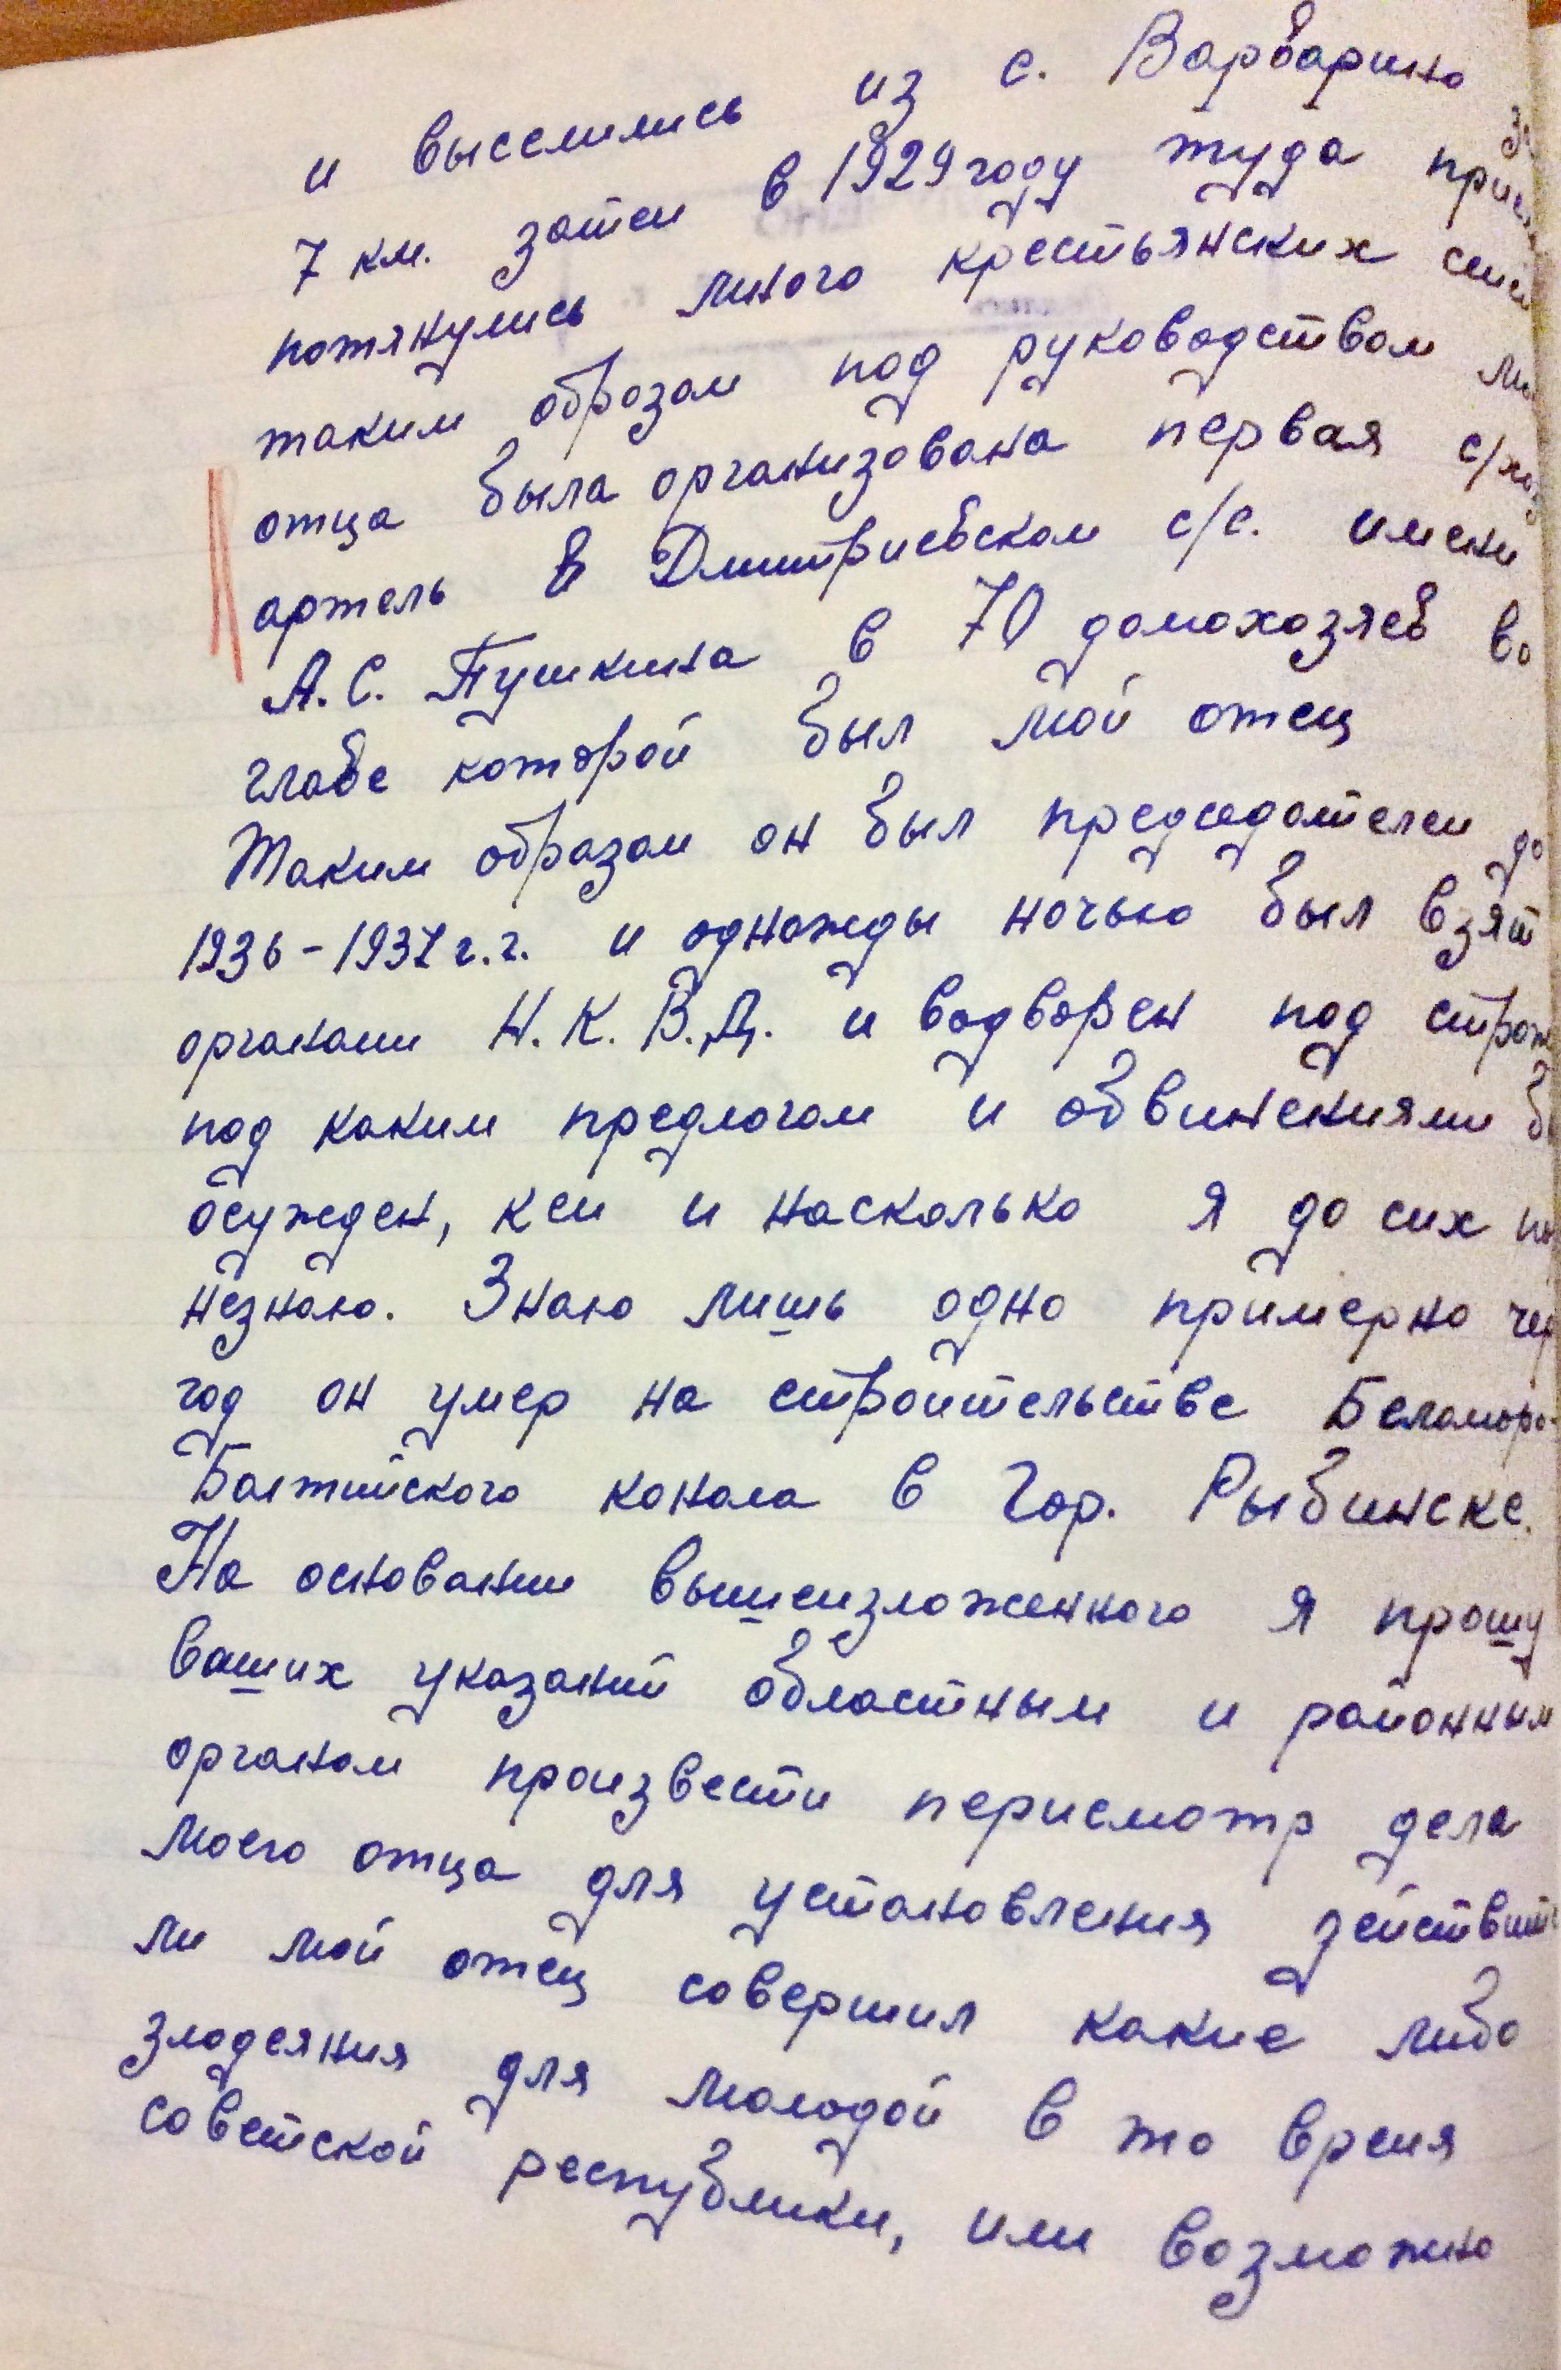 и выселились из с. Варварино
7 км. затем в 1929 году туда
потянулись много крестьянских
таким образом под руководством
отца была организована первая с/хоз
артель в Дмитриевском с/с. имени
А.С. Пушкина в 70 домохозяев во
главе которой был мой отец
Таким образом он был председателем до
1936-1937 г.г. и однажды ночью был взят
органами Н.К.В.Д. и водворен под
под каким предлогом и обвинениями
осужден, кем и насколько я до сих
незнаю. Знаю лишь одно примерно
год он умер на строительстве Беломоро-
Балтийского канала в гор. Рыбинске.
На основании вышеизложенного я прошу
ваших указаний областным и районным
органом произвести перисмотр дела
моего отца для установления
ли мой отец совершил какие либо
злодеяния для молодой в то время
советской республики, или возможно